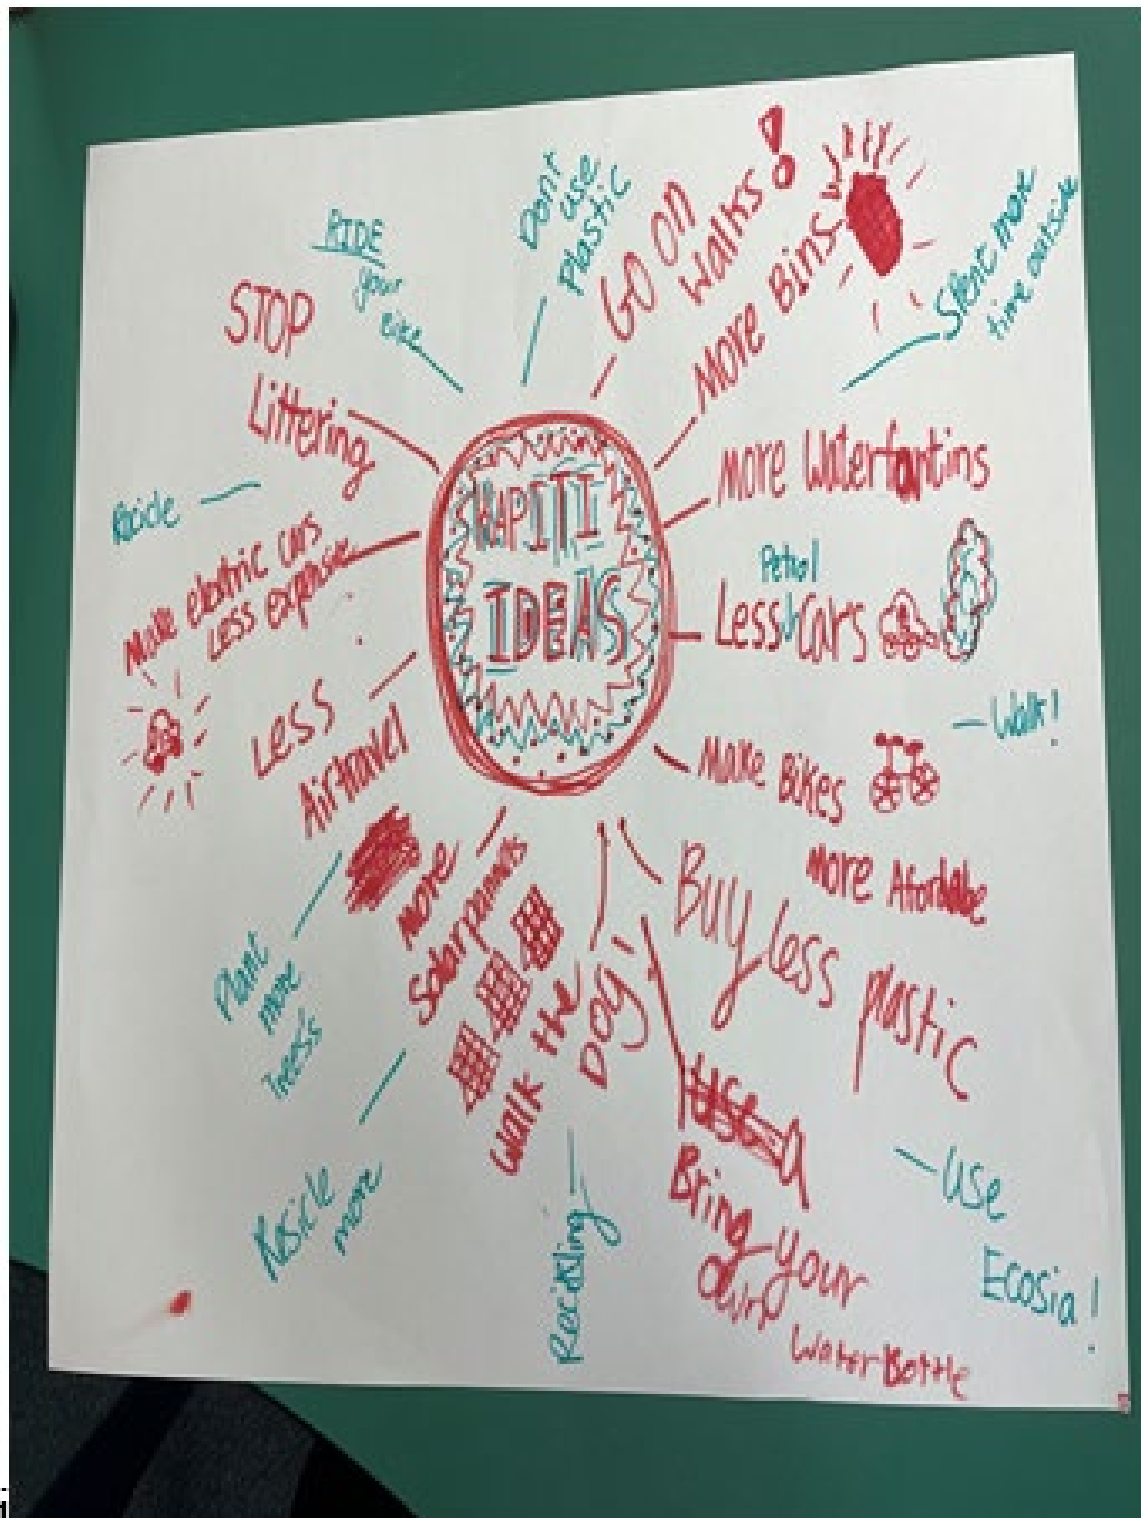 KAPITI
IDEAS
Dont
use
Plastic
GO ON
Walks!
More Bins
Spend more
time outside
More Waterfantins
Petrol
Less Cars
Walk!
Make Bikes
More Afordabe
Buy less plastic
Use
Ecosia!
Bring your
Own
Water Bottle
Walk the
DOG
Recicling
More
Solarpannels
Resicle
more
Plant
more
Trees
Less
Airtravel
Make electric cars
Less expensive
Recicle
STOP
Littering
RIDE
your